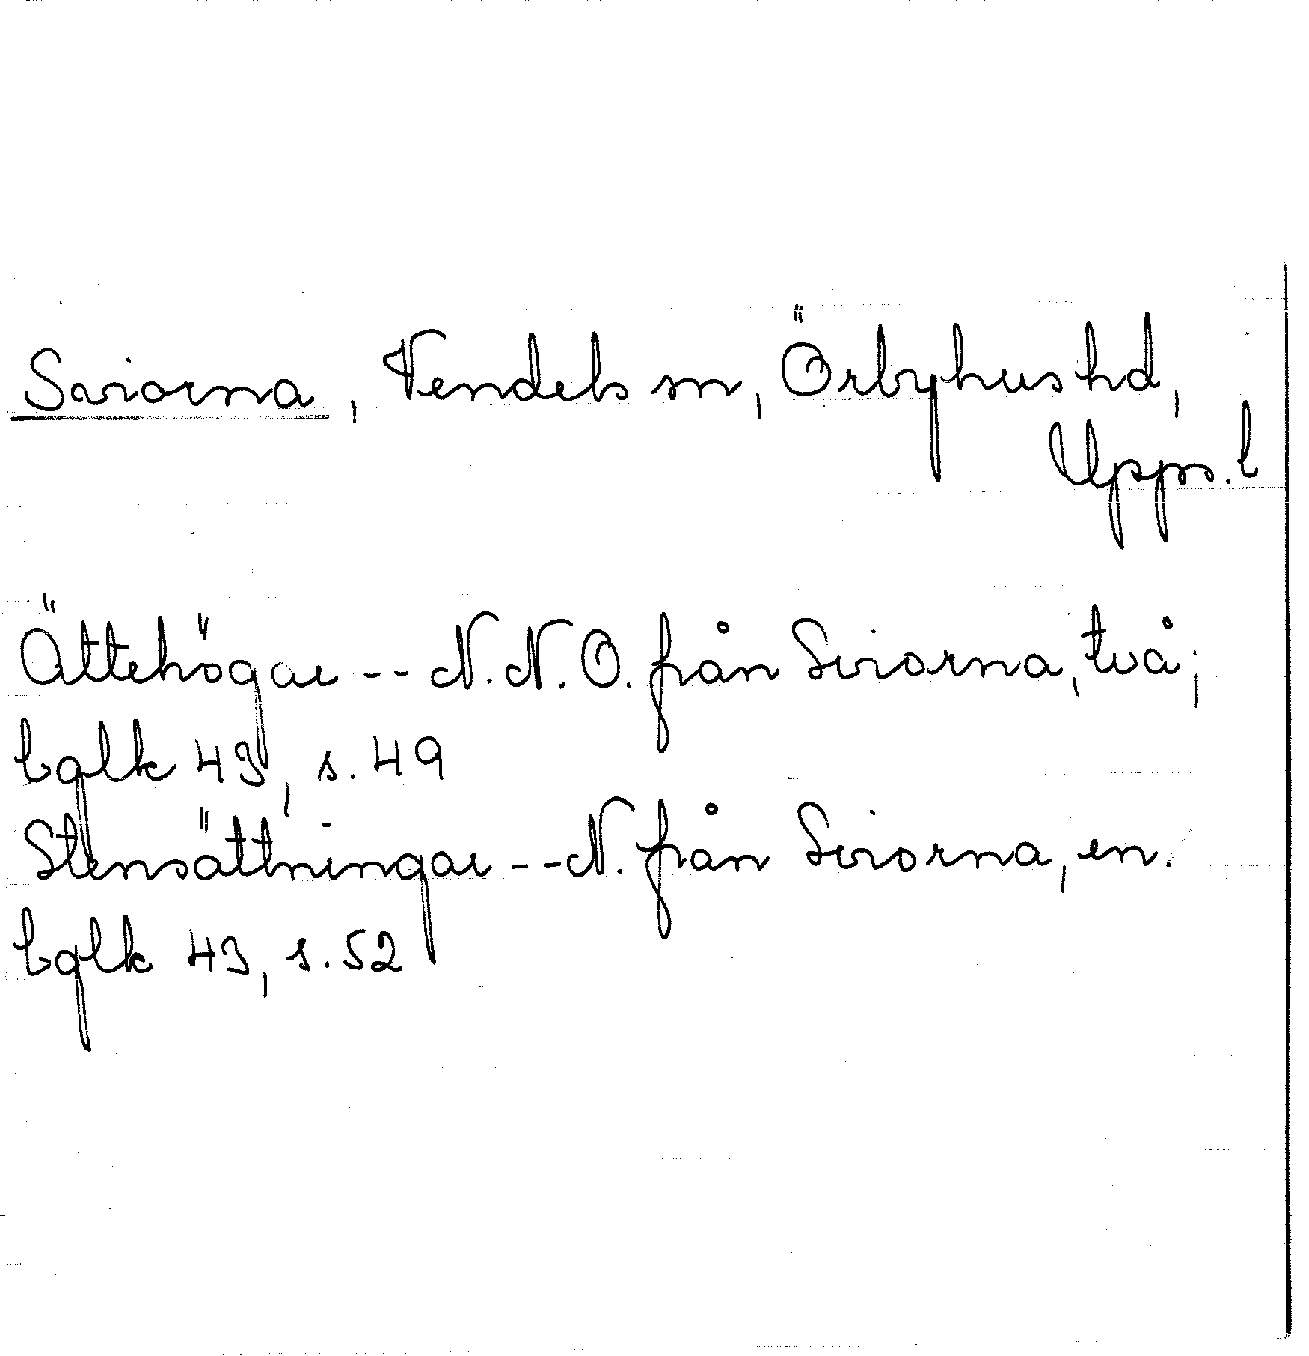 Sviorna, Vendels sn, Örbyhus hd,
Upps. l
Ättehögar -- N.N.O. från Sviorna, två;
bglk 43, s. 49
Stensättningar -- N. från Sviorna, en.
bglk 43, s. 52